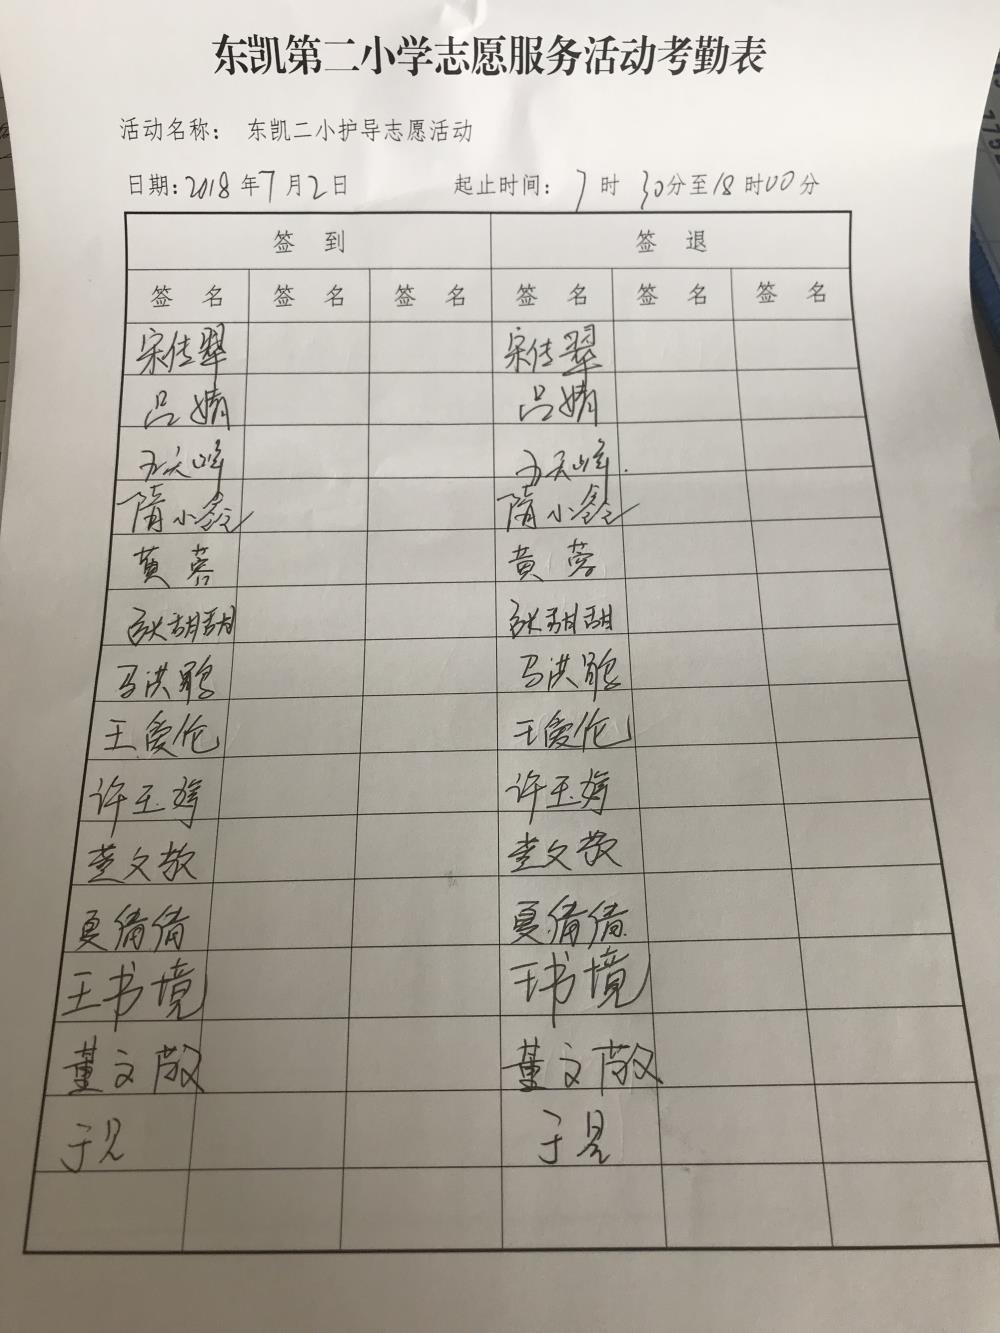 东凯第二小学志愿服务活动考勤表
活动名称： 东凯二小护导志愿活动
日期：2018年7月2日 起止时间：7时30分至18时00分
签 到 签 退
签 名 签 名 签 名 签 名 签 名 签 名
宋传翠 宋传翠
吕婧 吕婧
隋小 隋小
黄蓉 黄蓉
耿甜甜 耿甜甜
马洪鹏 马洪鹏
王爱伦 王爱伦
许玉婷 许玉婷
董文敬 董文敬
夏倩倩 夏倩倩
王书境 王书境
董文敬 董文敬
于 于